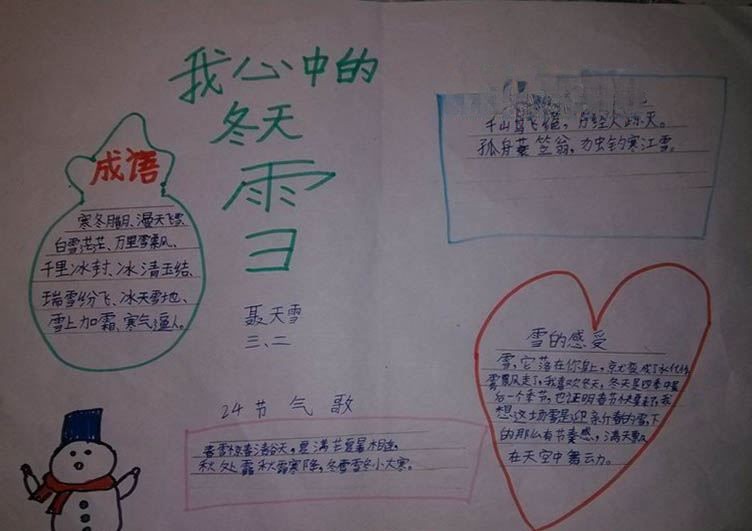 我心中的
冬天
雪
聂天雪
三、二
成语
寒冬腊月、漫天飞雪
白雪茫茫、万里雪飘、
千里冰封、冰清玉结、
瑞雪纷飞、冰天雪地、
雪上加霜、寒气逼人。
千山鸟飞绝，万径人踪灭。
孤舟蓑笠翁，独钓寒江雪。
24节气歌
春雨惊春清谷天，夏满芒夏暑相连，
秋处露秋霜寒降，冬雪雪冬小大寒。
雪的感受
雪，它落在你身上，就变成了水
雪飘走了，我喜欢冬天，冬天是四季中最
后一个季节，也证明春节快要来了，我
想这场雪是迎新春的雪，下
的那么有节奏感，满天飘
在天空中舞动。